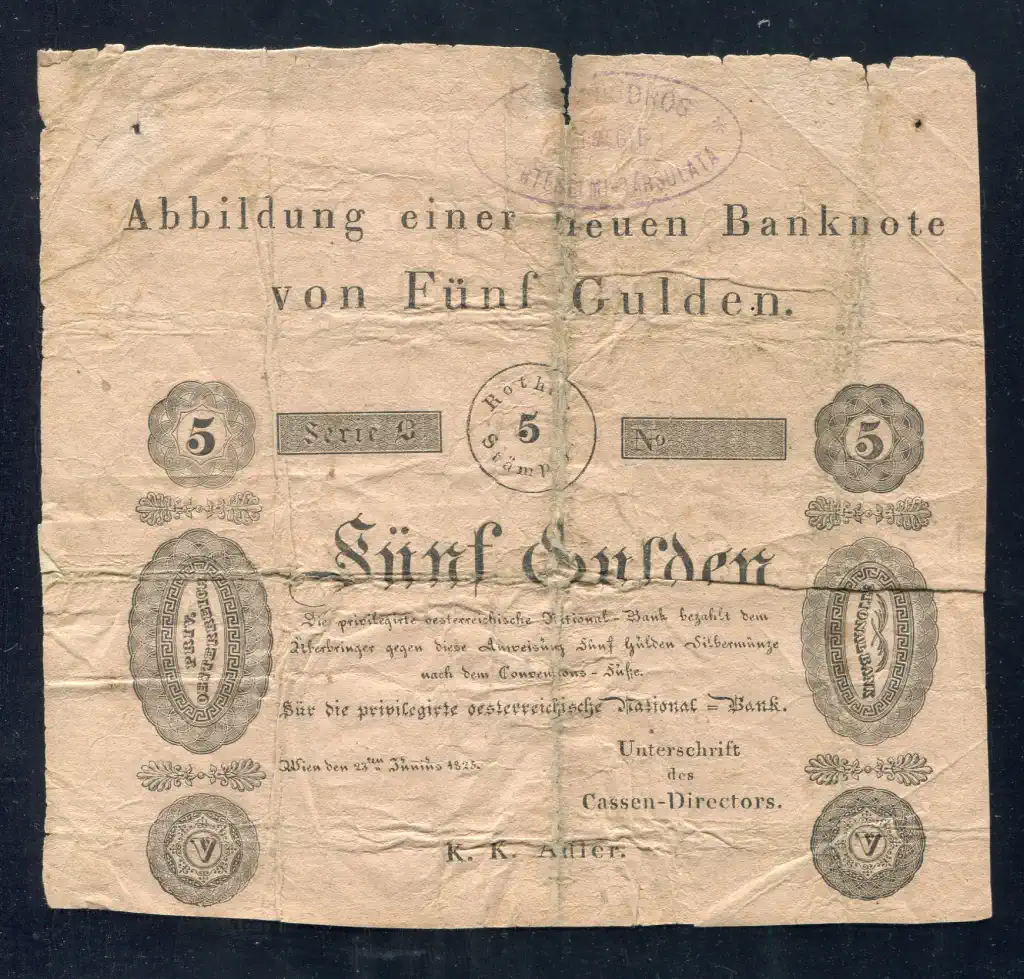 Abbildung einer neuen Banknote
von Fünf Gulden.
5
Serie L
Rothe
5
Stämpel
No
5
Fünf Gulden
Die privilegirte oesterreichische National-Bank bezahlt dem
Uiberbringer gegen diese Anweisung Fünf Gülden Silbermünze
nach dem Conventions-Fuße.
Für die privilegirte oesterreichische National=Bank.
Wien den 23ten Junius 1825.
Unterschrift
des
Cassen-Directors.
K. K. Adler.
WIENER
NATIONAL BANK
V
V
TÁRSULATA